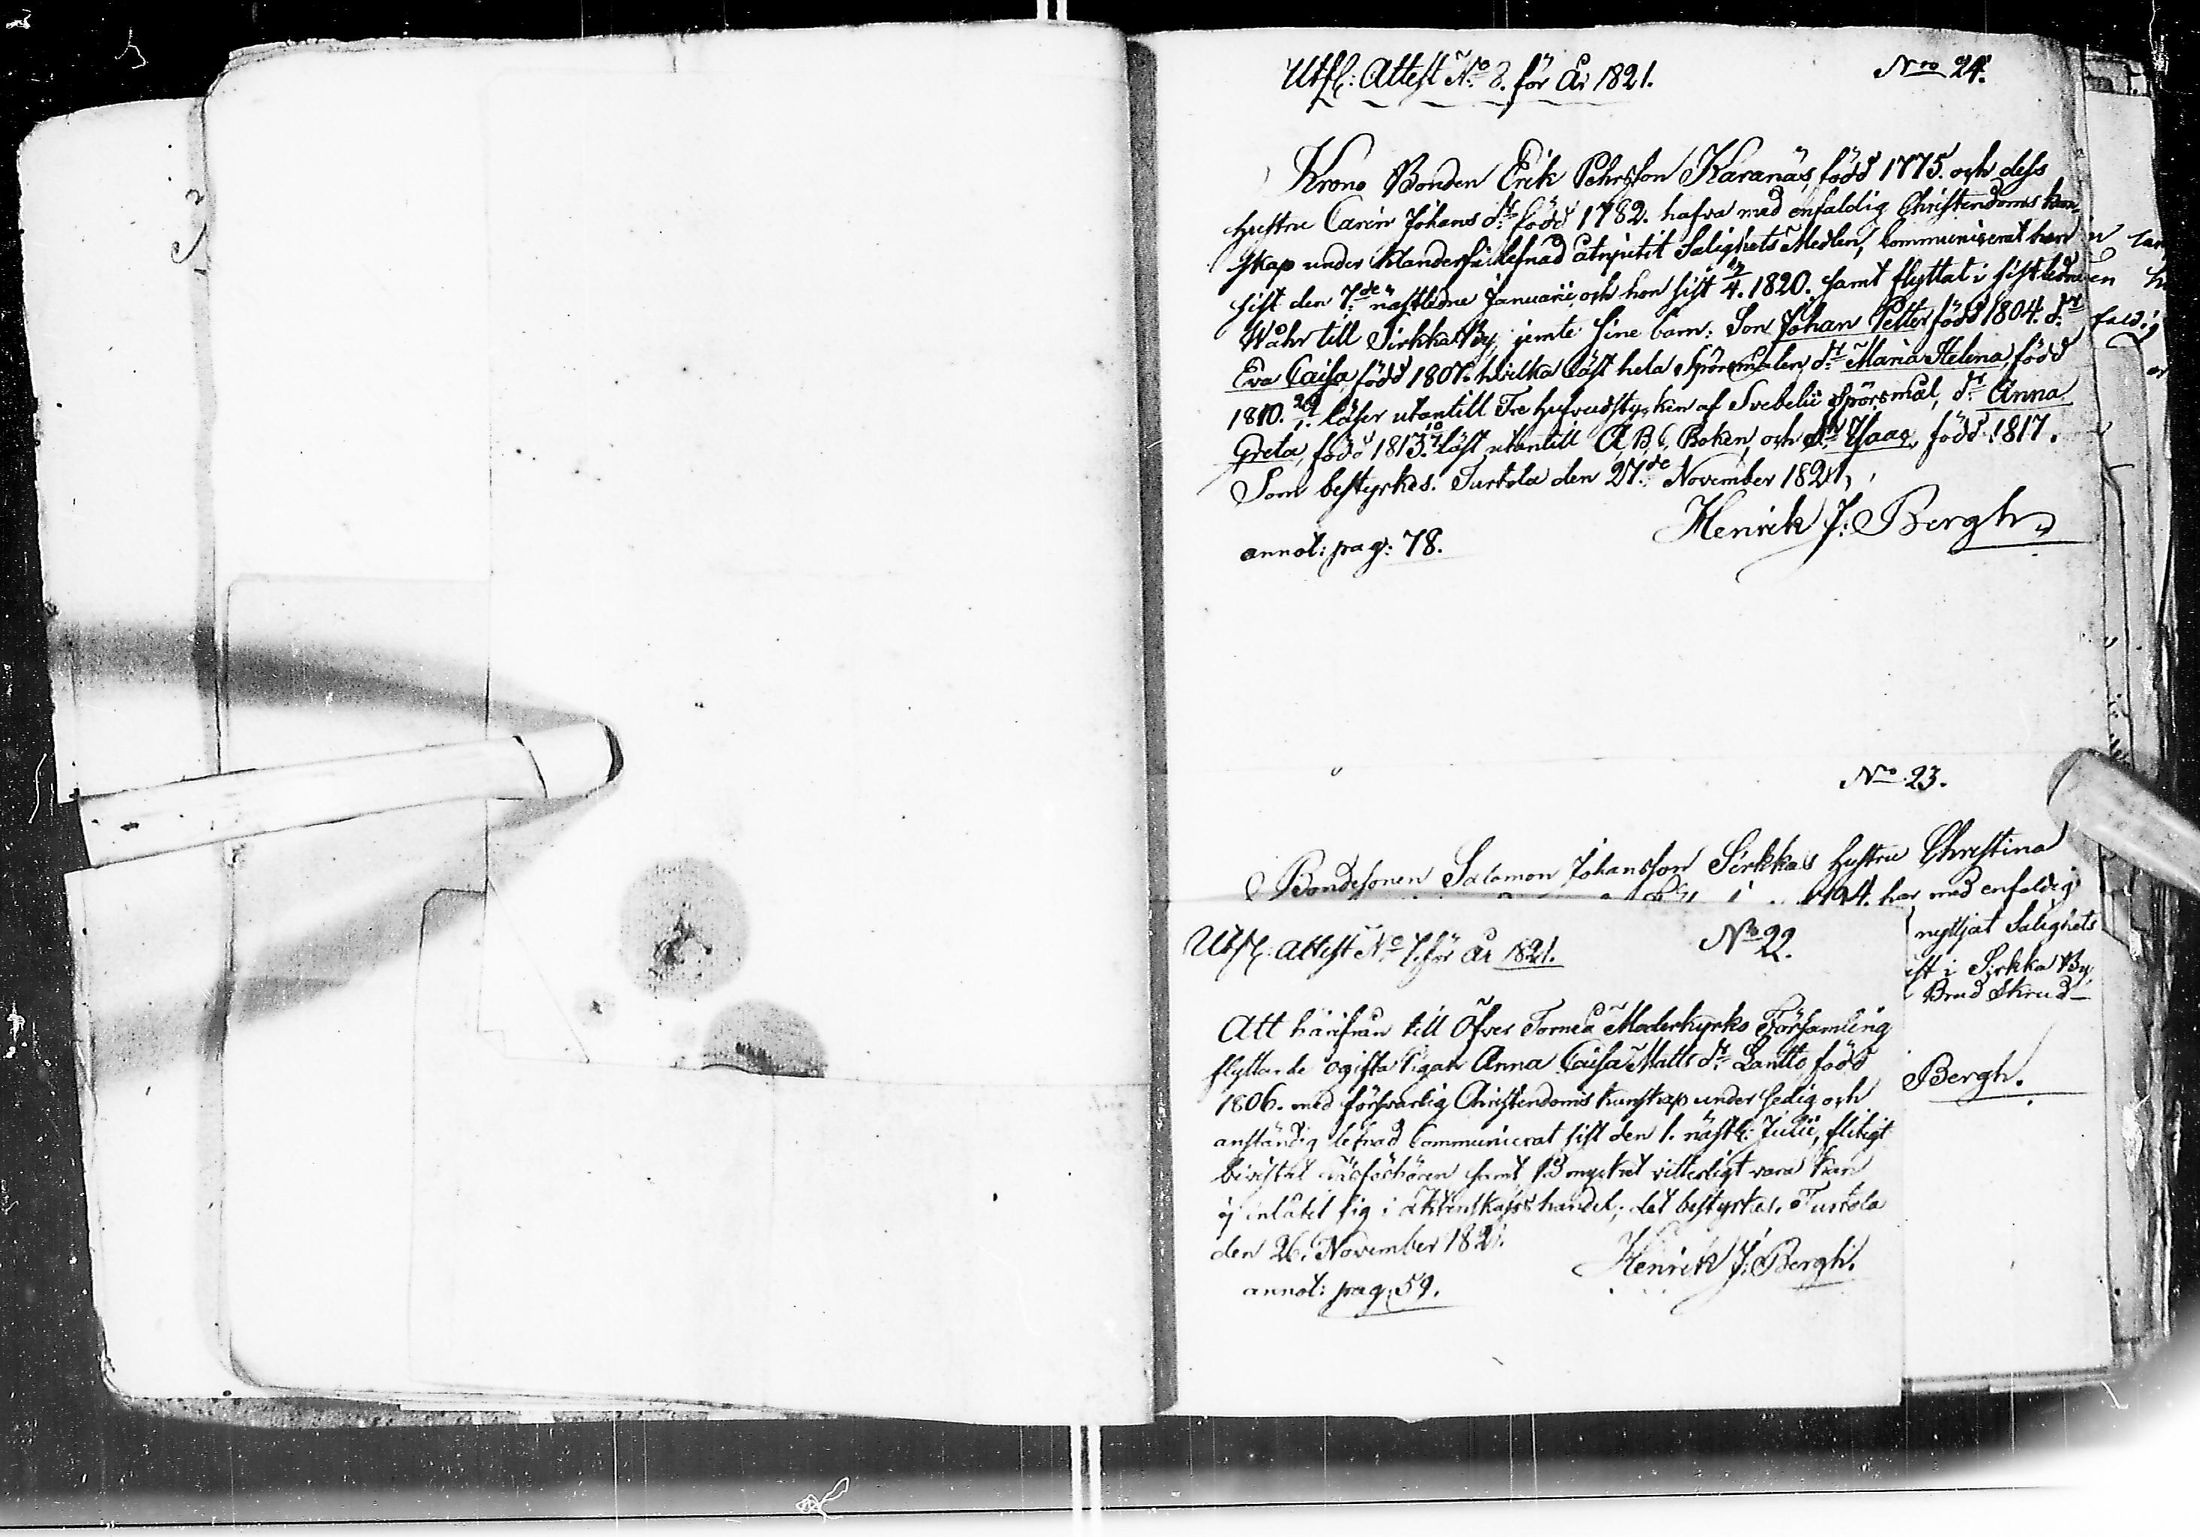 Utfl: Attest No 8. för År 1821.
Nro 24.
Krono Bonden Erik Pehrsson Karanäs, född 1775. och dess
hustru Carin Johans dr född 1782. hafva med enfaldig Christendoms kun-
skap under klanderfri lefnad åtnjutit Salighets Medlen, Communicerat han
sist den 7de nästledne Januarii och hon sist 4. 1820. samt flyttat i sistledne
Wåhr till Sirkka By, jemte sine barn: Son Johan Petter född 1804. dr
Eva Caisa, född 1807. hvilka läst hela Spörsmålen, dr Maria Helena, född
1810. läser utantill Tre hufvudstycken af Svebelii Spörsmål, dr Anna
Greta, född 1813. läst utantill A, B, C, Boken, och Isaac, född 1817.
Som bestyrkes. Turtola den 27de November 1821,
Henrik J: Bergh.
annot: pag: 78.
No 23.
Bondesonen Salamon Johansson Sirkkas hustru Christina
har med enfaldig
nyttjat Salighets
i Sirkka By,
Brud Skrud
Bergh.
Utfl: Attest No 7. för År 1821.
No 22.
Att härifrån till Öfver Torneå Moderkyrko Församling
flyttande ogifta Pigan Anna Caisa Matts dr Lantto, född
1806. med försvarlig Christendoms kunskap under sedig och
anständig lefnad Communicerat sist den 1. nästl: Julii, flitigt
bivistat Läsförhören samt så mycket vitterligt vara kan
ej inlåtit sig i äktenskapshandel; det bestyrkes. Turtola
den 26. November 1821.
Henrik J: Bergh.
annot: pag: 59.